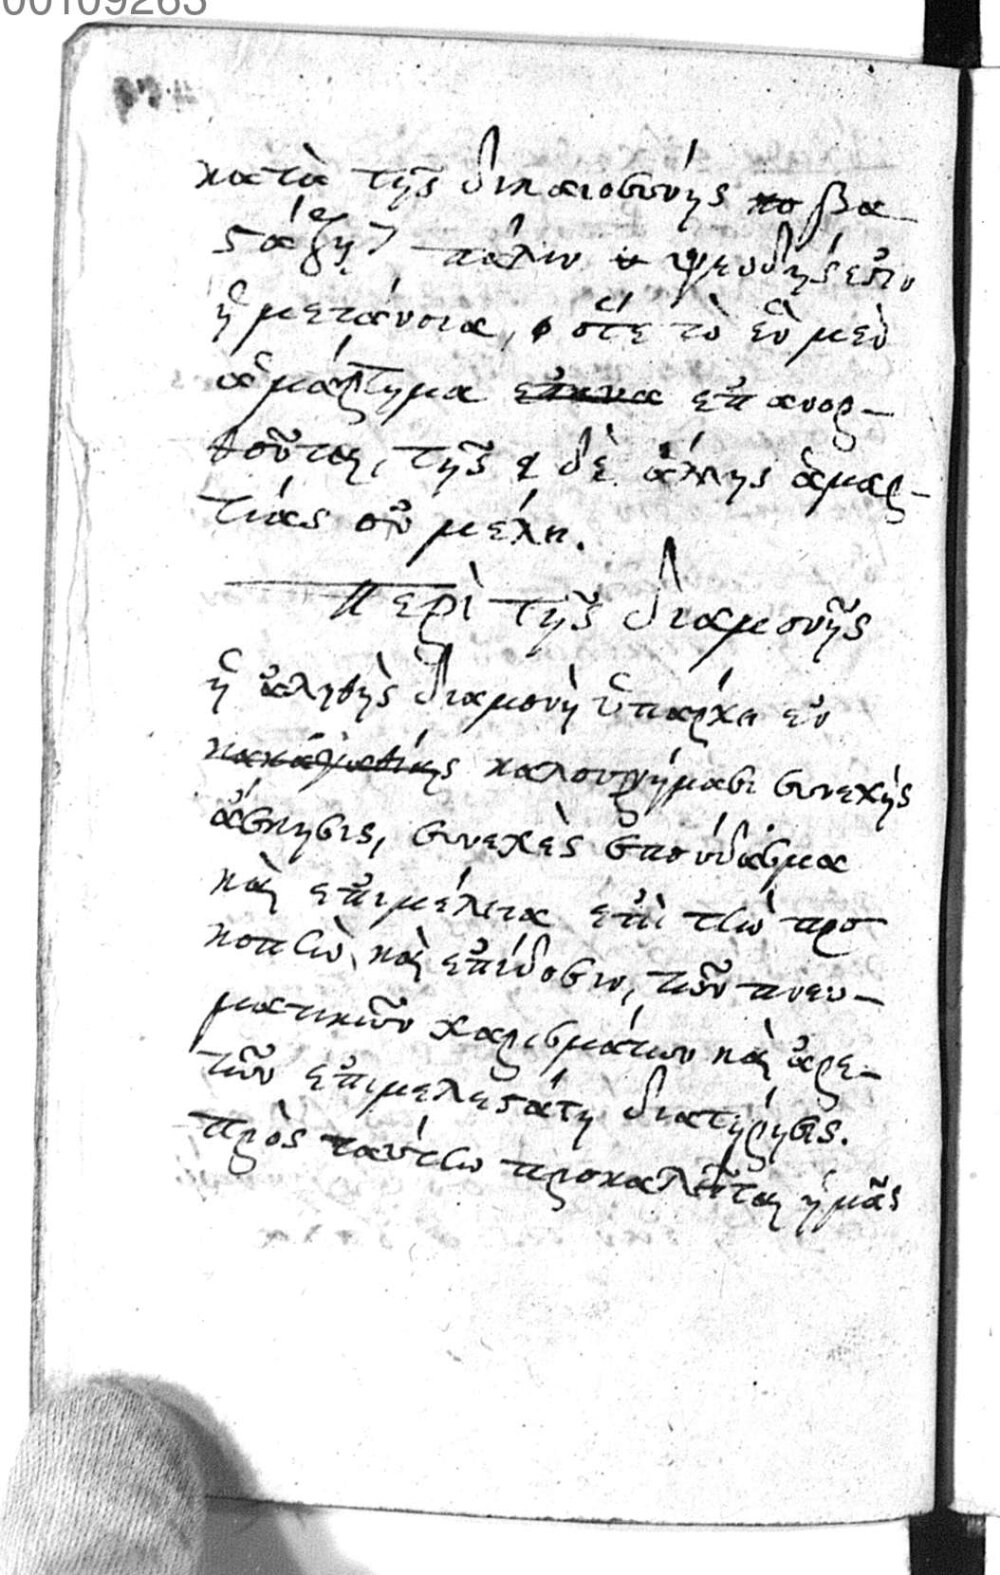 00109263
κατὰ τῆς δικαιοσύνης βα-
στάζη πάλιν ψευδής ἐστιν
ἡ μετάνοια, ὅτε τὸ ἓν μὲν
ἁμάρτημα ἐπανορ-
θοῦται, τῆς δὲ ἄλλης ἁμαρ-
τίας οὐ μέλει.
Περὶ τῆς διαμονῆς
ἡ ἀληθὴς διαμονὴ ὑπάρχει ἐν
συνεχὴς
ἄσκησις, συνεχὲς σπούδασμα
καὶ ἐπιμέλεια ἐπὶ τὴν προ
κοπὴν, καὶ ἐπίδοσιν, τῶν πνευ-
ματικῶν χαρισμάτων καὶ ἀρε-
τῶν ἐπιμελεστάτη διατήρησις.
πρὸς ταύτην προκαλεῖται ἡμᾶς